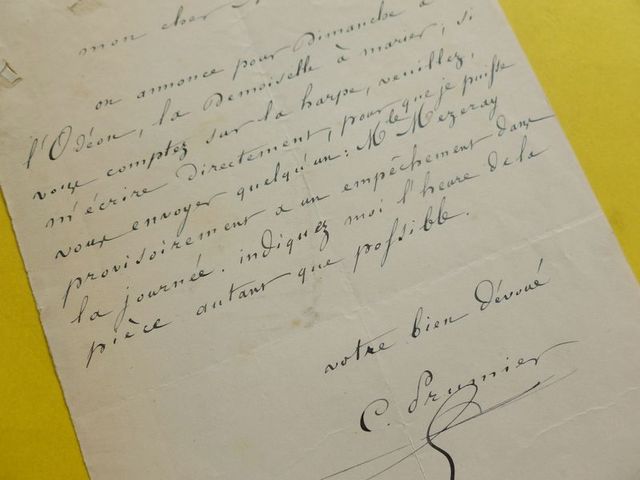 mon cher
on annonce pour Dimanche à
l'Odéon, la Demoiselle à marier, si
vous comptez sur la harpe, veuillez,
m'écrire directement, pour que je puisse
vous envoyer quelqu'un: Mlle Mezeray
provisoirement a un empêchement dans
la journée. indiquez moi l'heure de la
pièce autant que possible.
votre bien dévoué
C. Prumier